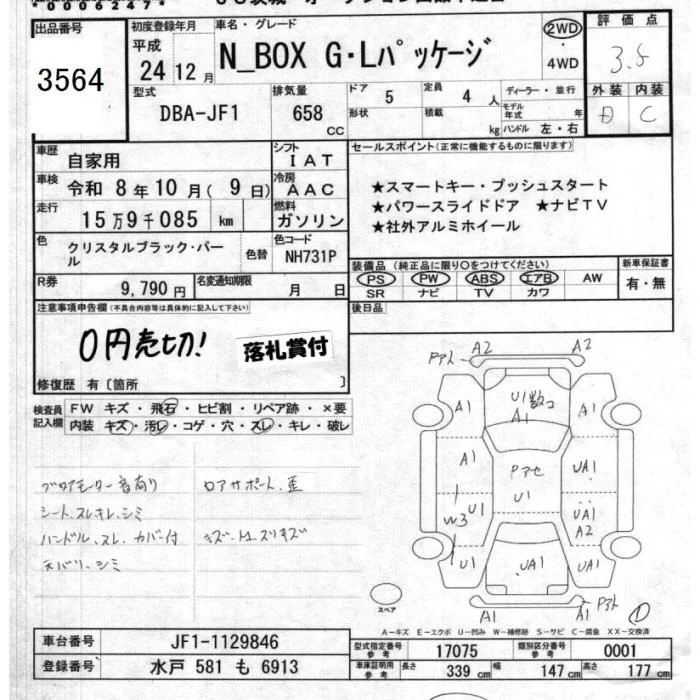 出品番号
3564
初度登録年月
平成
24 12 月
車名・グレード
N_BOX G・Lパッケージ
2WD
・
4WD
評価点
3.5
外装 内装
B C
型式
DBA-JF1
排気量
658
cc
ドア
5
定員
4 人
ディーラー・並行
形状
積載
kg
モデル年式 年
ハンドル 左・右
車歴
自家用
シフト
IAT
車検
令和 8年 10月( 9日)
冷房
AAC
走行
15万9千085 km
燃料
ガソリン
色
クリスタルブラック・パール
色替
色コード
NH731P
R券
9,790 円
名変通知期限
月 日
セールスポイント(正常に機能するものに限ります)
★スマートキー・プッシュスタート
★パワースライドドア ★ナビTV
★社外アルミホイール
装備品(純正品に限り○をつけてください)
PS PW ABS エアB AW
SR ナビ TV カワ
新車保証書
有・無
後日品
注意事項申告欄(不具合内容等は具体的に記入して下さい)
0円売切!
落札賞付
修復歴 有〔箇所 〕
検査員記入欄
FW キズ・飛石・ヒビ割・リペア跡・×要
内装 キズ・汚レ・コゲ・穴・スレ・キレ・破レ
ブロアモーター音有り
ロアサポート歪
シート、スレキレ、シミ
ハンドル、スレ、カバー付
天バリ、シミ
A2 A2
A1 U1 A1 A1
A1 Pアセ UA1
U1
W3 U1 UA1
A2
U1 UA1 UA1
A1 A1
スペア
A-キズ E-エクボ U-凹み W-補修跡 S-サビ C-腐食 XX-交換済
車台番号
JF1-1129846
登録番号
水戸 581 も 6913
型式指定番号 参考
17075
類別区分番号 参考
0001
車庫証明用 参考
長さ 339 cm
幅 147 cm
高さ 177 cm